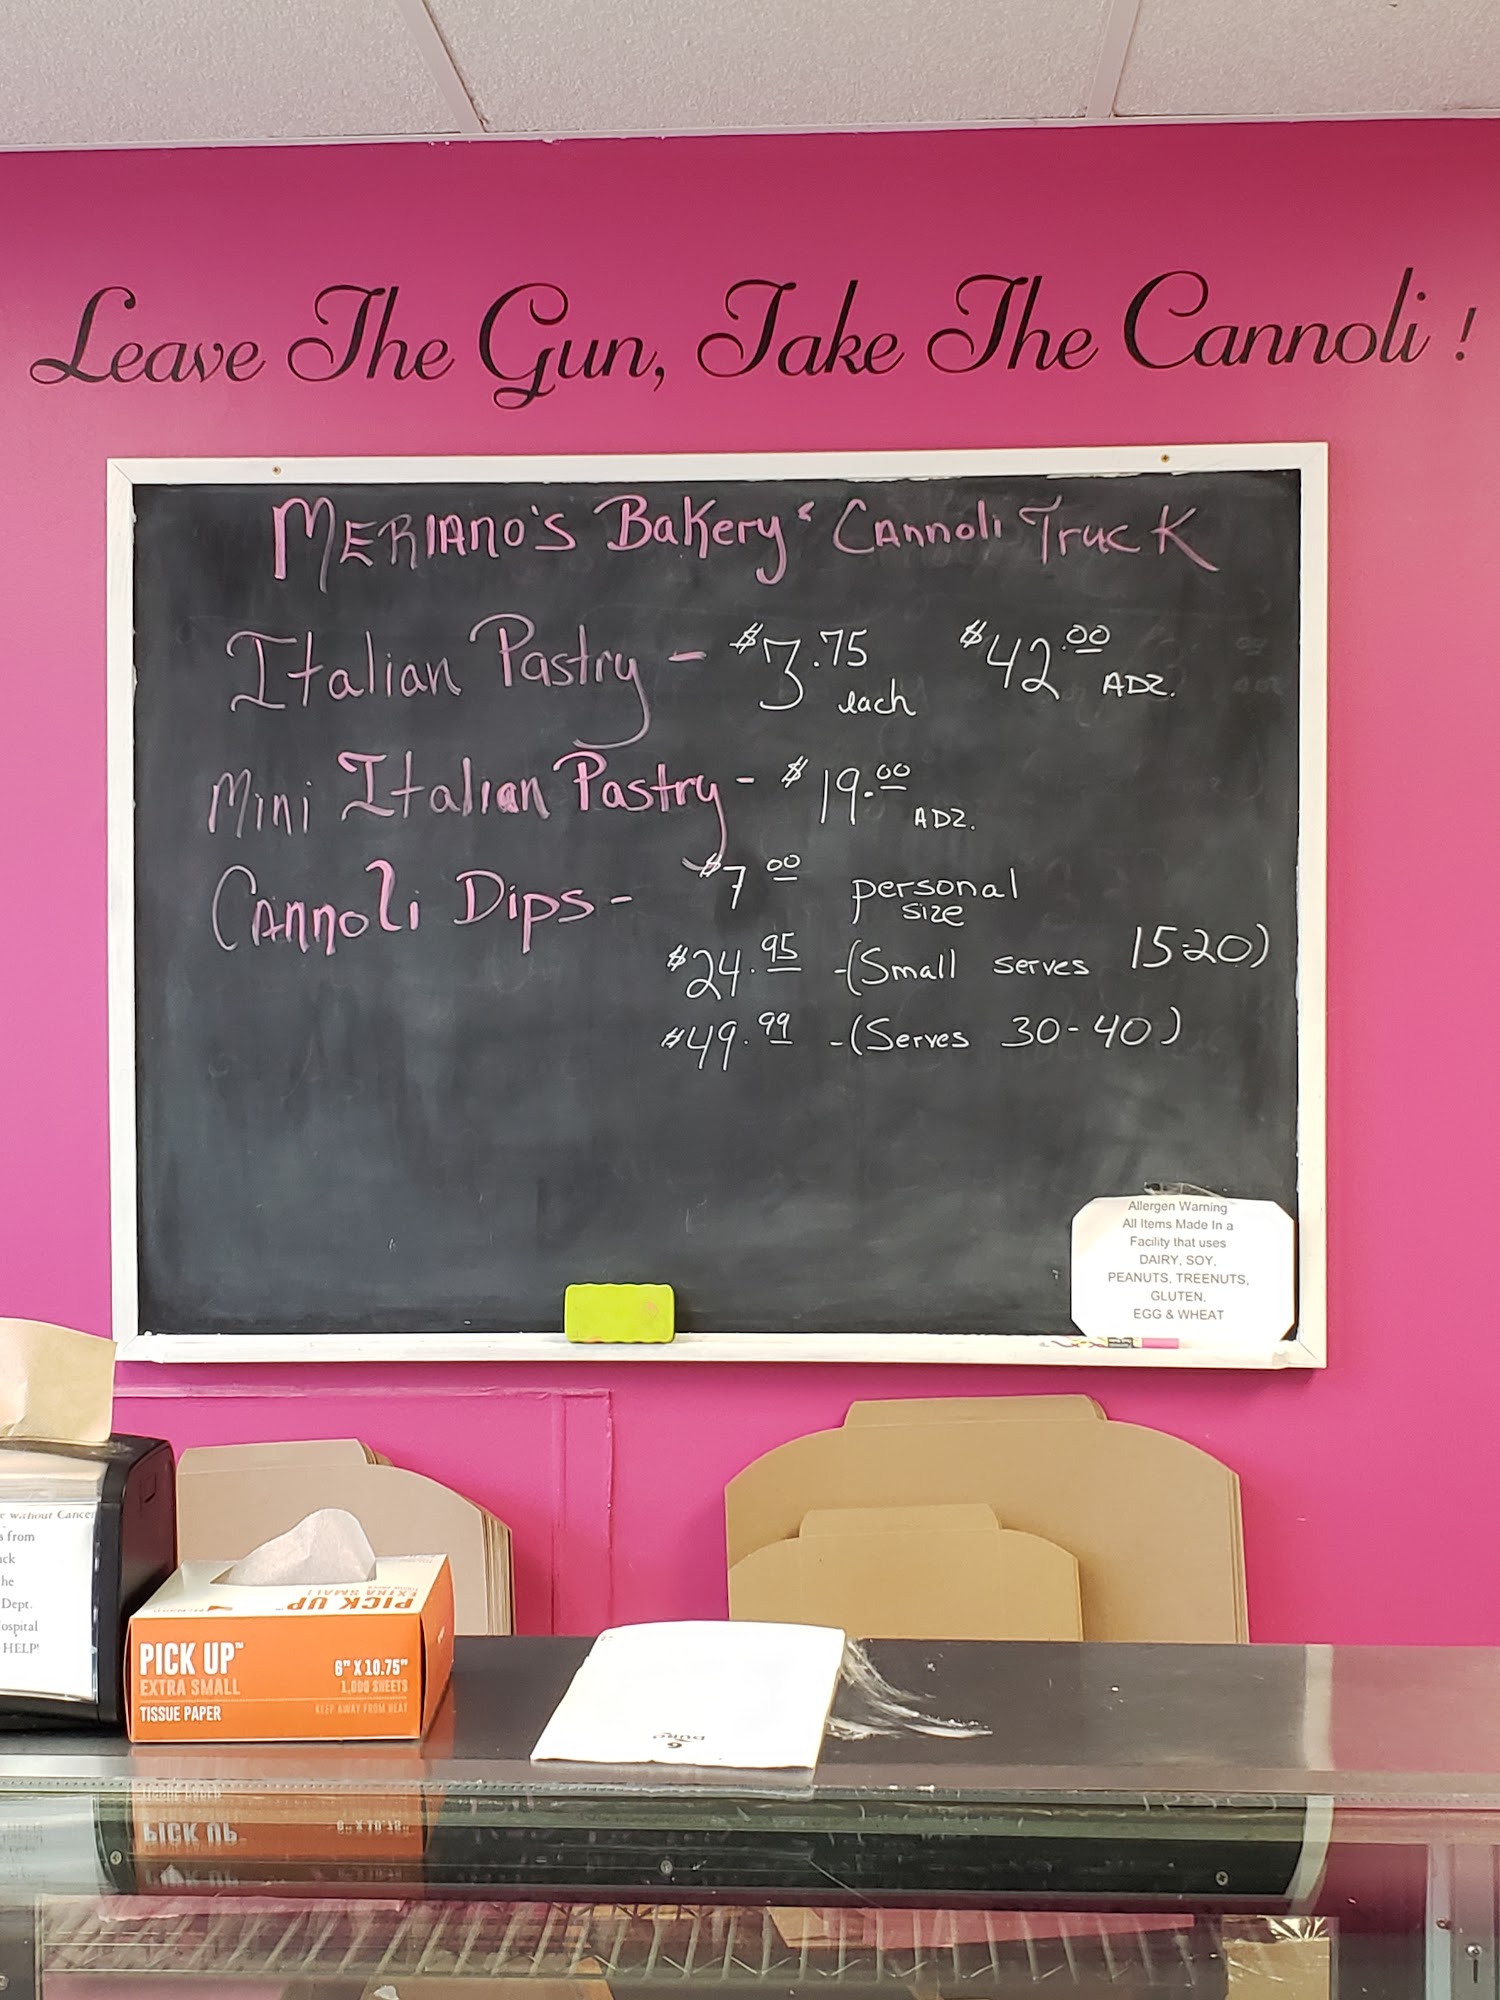 Leave The Gun, Take The Cannoli !
MERIANO'S BAKERY & CANNOLI TRUCK
Italian Pastry - $3.75 each $42.00 A DZ.
Mini Italian Pastry - $19.00 A DZ.
Cannoli Dips - $7.00 personal size
$24.95 - (Small serves 15-20)
$49.99 - (Serves 30-40)
Allergen Warning
All Items Made In a
Facility that uses
DAIRY, SOY,
PEANUTS, TREENUTS,
GLUTEN,
EGG & WHEAT
without Cancer
from
he
Dept.
HELP!
PICK UP™
EXTRA SMALL
PICK UP™
EXTRA SMALL
TISSUE PAPER
8" X 10.75"
1,000 SHEETS
KEEP AWAY FROM HEAT
6
DURO